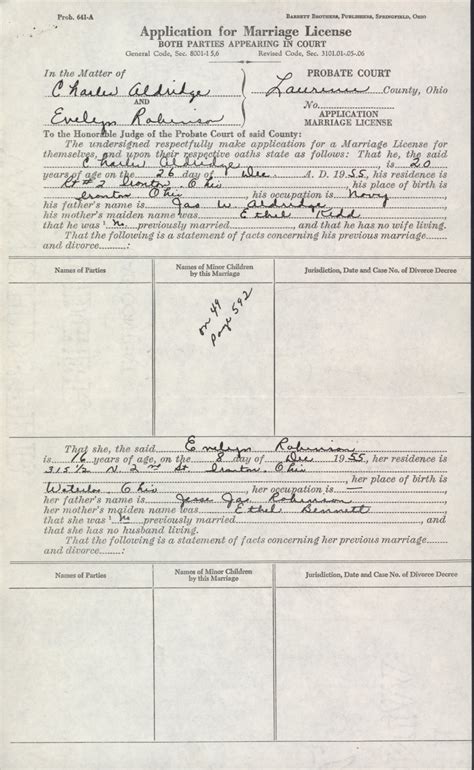 Prob. 641-A
BARRETT BROTHERS, PUBLISHERS, SPRINGFIELD, OHIO
Application for Marriage License
BOTH PARTIES APPEARING IN COURT
General Code, Sec. 8001-1 5,6 Revised Code, Sec. 3101.01-.05-.06
In the Matter of
Charles Aldridge
AND
Evelyn Robinson
PROBATE COURT
Lawrence County, Ohio
No.
APPLICATION
MARRIAGE LICENSE
To the Honorable Judge of the Probate Court of said County:
The undersigned respectfully make application for a Marriage License for
themselves, and upon their respective oaths state as follows: That he, the said
Charles Aldridge is 20
years of age on the 26 day of Dec A. D. 1955, his residence is
Rt #2 Ironton Ohio his place of birth is
Ironton Ohio, his occupation is Navy,
his father's name is Jas W. Aldridge
his mother's maiden name was Ethel Kidd
that he was no previously married, and that he has no wife living.
That the following is a statement of facts concerning his previous marriage
and divorce:
Names of Parties
Names of Minor Children
by this Marriage
Jurisdiction, Date and Case No. of Divorce Decree
on 49
page 592
That she, the said Evelyn Robinson
is 16 years of age, on the 8 day of Dec 1955, her residence
315 1/2 N. 2nd St Ironton. Ohio
, her place of birth is
Waterloo Ohio, her occupation is
her father's name is Jesse Jas Robinson
her mother's maiden name was Ethel Bennett
that she was no previously married, and
that she has no husband living.
That the following is a statement of facts concerning her previous marriage
and divorce:
Names of Parties
Names of Minor Children
by this Marriage
Jurisdiction, Date and Case No. of Divorce Decree